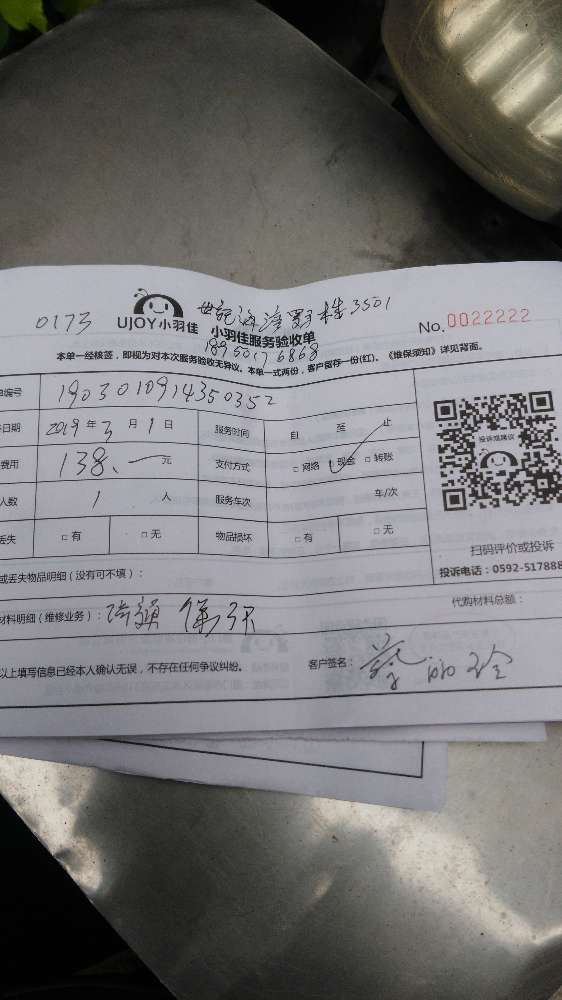 0173 UJOY小羽佳 世纪海湾 3501
小羽佳服务验收单 No.0022222
18950176868
本单一经核签，即视为对本次服务验收无异议。本单一式两份，客户留存一份(红)。《维保须知》详见背面。
单编号 1903010914350352
日期 2019年3月1日 服务时间 自 至 止
费用 138.一元 支付方式 □网络 □现金 □转账
人数 1人 服务车次 车/次
丢失 □有 □无 物品损坏 □有 □无
投诉或建议
扫码评价或投诉
投诉电话：0592-517888
或丢失物品明细（没有可不填）：
代购材料总额：
材料明细（维修业务）：
以上填写信息已经本人确认无误，不存在任何争议纠纷。 客户签名：